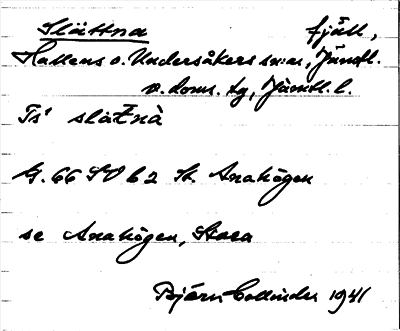 Slåttna fjäll,
Hallens o. Undersåkers sn:ar, Jämtl.
v. doms. tg, Jämtl. l.
Ts'
G. 66 SV b 2 St. Anahögen
se Anahögen, Stora
Björn Collinder 1941